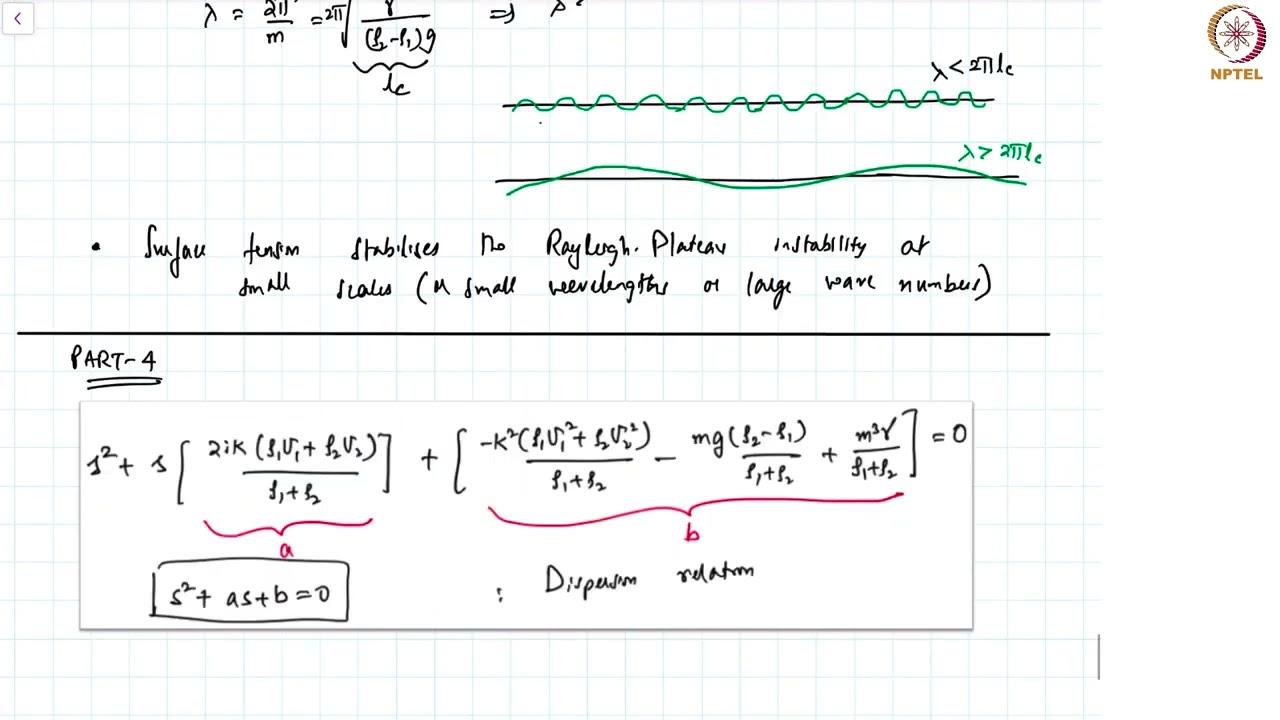 λ = 2π/m = 2π √(γ/((ρ₂-ρ₁)g)) ⇒ λ
lc
λ < 2πlc
λ > 2πlc
• Surface tension stabilises the Rayleigh-Plateau instability at
small scales (or small wavelengths or large wave numbers)
PART-4
s² + s [2ik(ρ₁U₁ + ρ₂U₂)/(ρ₁+ρ₂)] + [-k²(ρ₁U₁² + ρ₂U₂²)/(ρ₁+ρ₂) - mg(ρ₂-ρ₁)/(ρ₁+ρ₂) + m³γ/(ρ₁+ρ₂)] = 0
a
b
s² + as + b = 0 : Dispersion relation
NPTEL